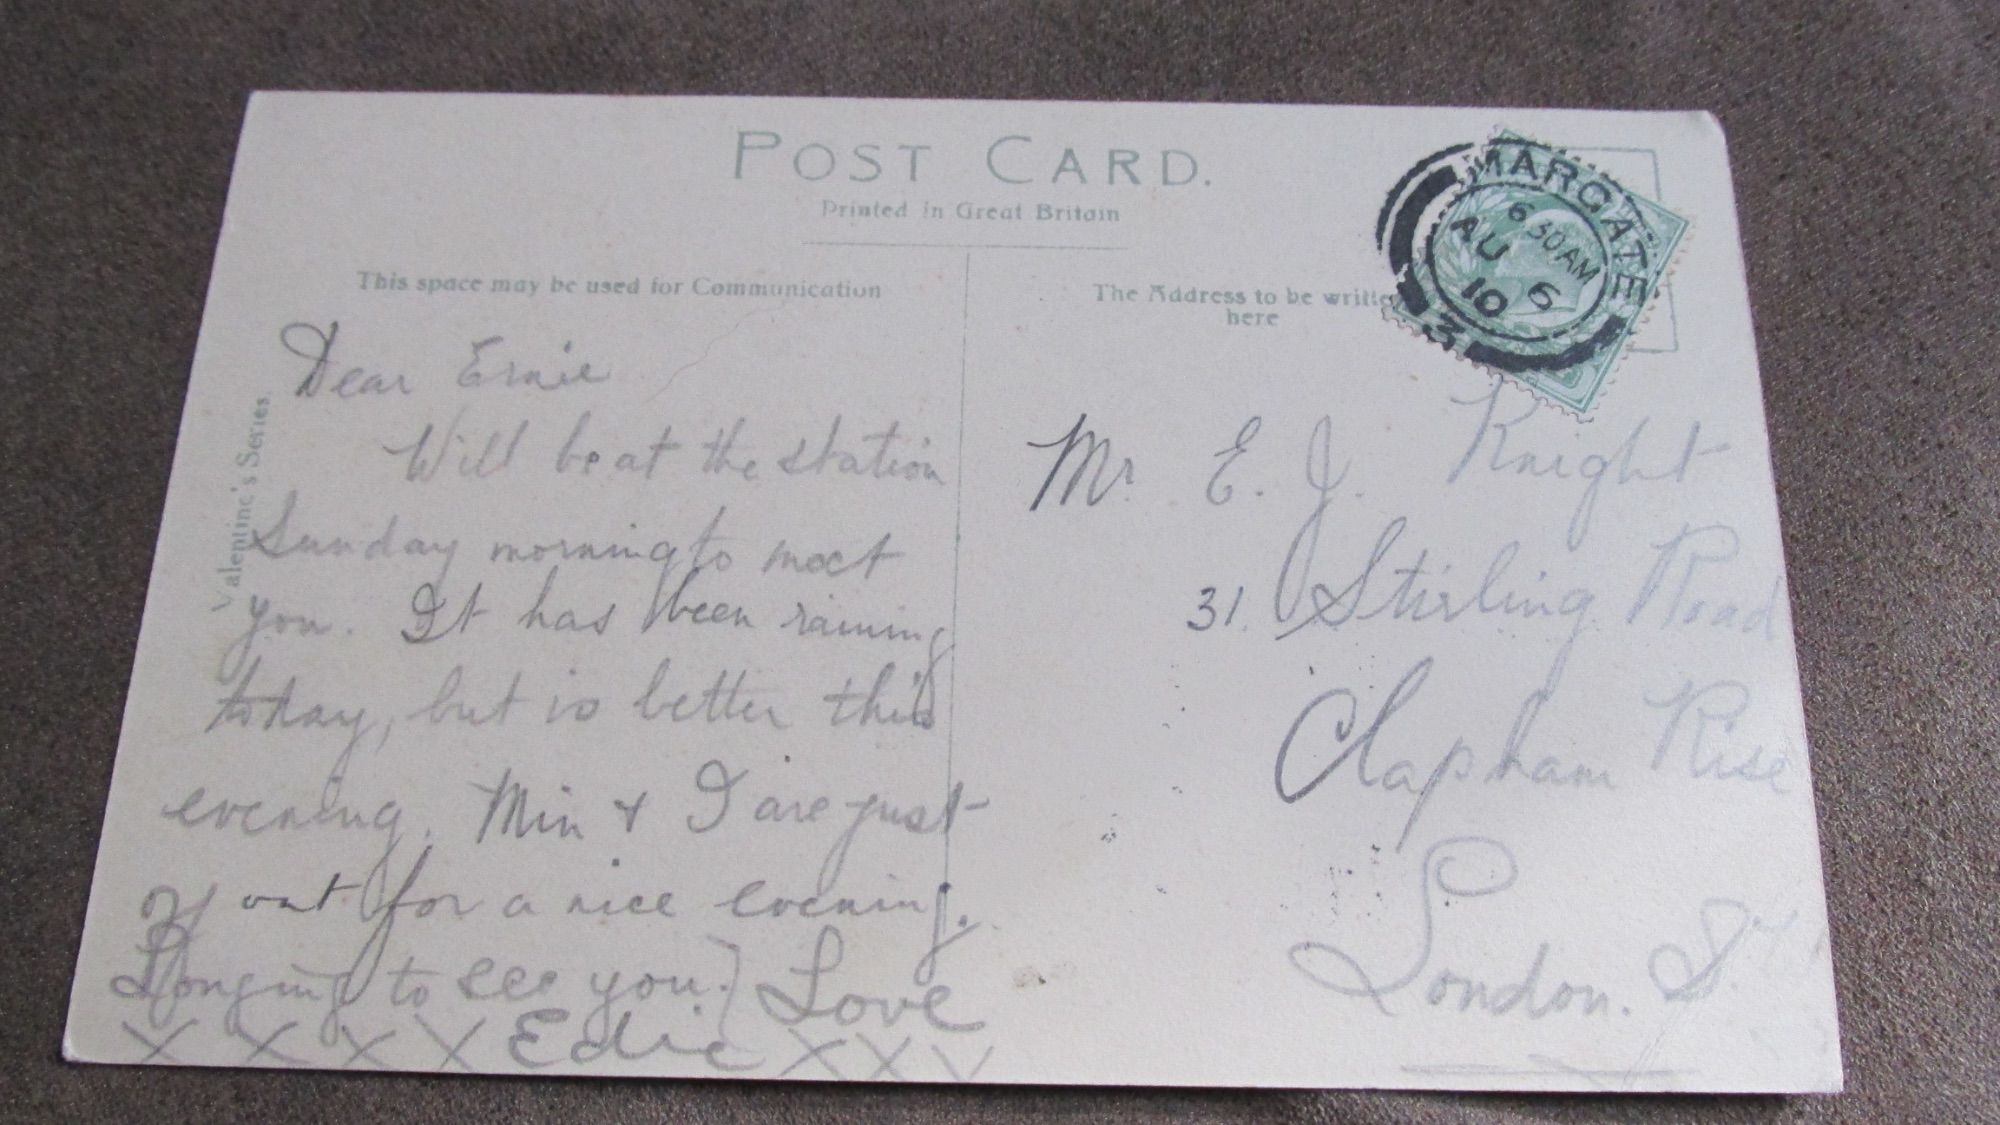 POST CARD.
Printed in Great Britain
This space may be used for Communication
The Address to be writte
here
Valentine's Series.
MARGATE
6 30 AM
AU 6
10
3
Dear Ernie
Will be at the station
Sunday morning to meet
you. It has been raining
today, but is better this
evening. Min & I are just
out for a nice evening.
Longing to see you. Love
X X X X Edie X X X
Mr. E. J. Knight
31. Stirling Road
Clapham Rise
London. S.